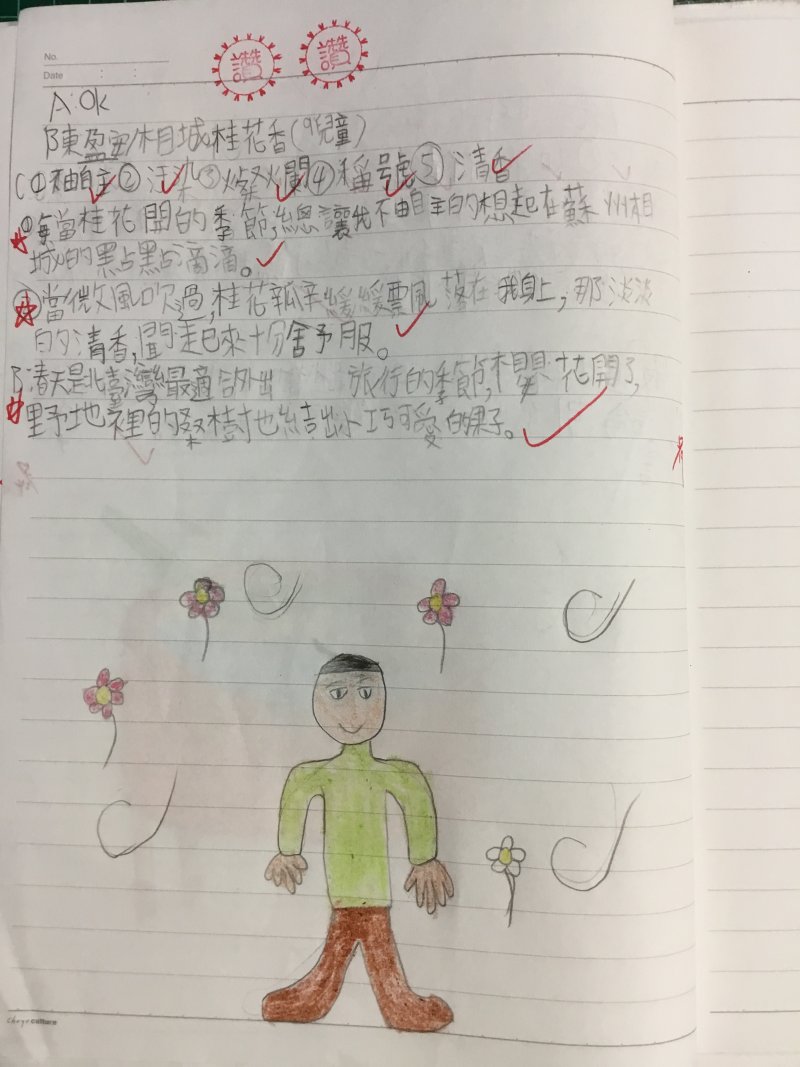 No.
Date : :
讚 讚
A:Ok
B陳盈安/相城桂花香(9兒童)
C①自主②汙染③燦爛④稱號⑤清香
①每當桂花開的季節,總讓我不由自主的想起在蘇州相
城的點點滴滴。
②當微風吹過,桂花瓣緩緩飄落在我身上,那淡淡
的清香,聞起來十分舍予服。
B:春天是北臺灣最適合外出 旅行的季節,櫻花開了,
野地裡的桑樹也結出小巧可愛的果子。
culture